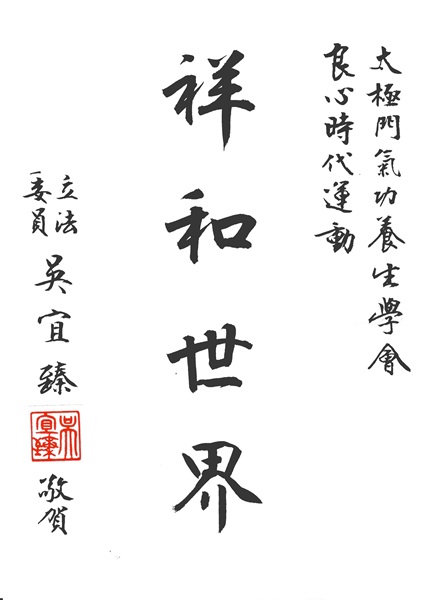 太極門氣功養生學會
良心時代運動
祥和世界
立法
委員
吳宜臻
吳宜臻
敬賀